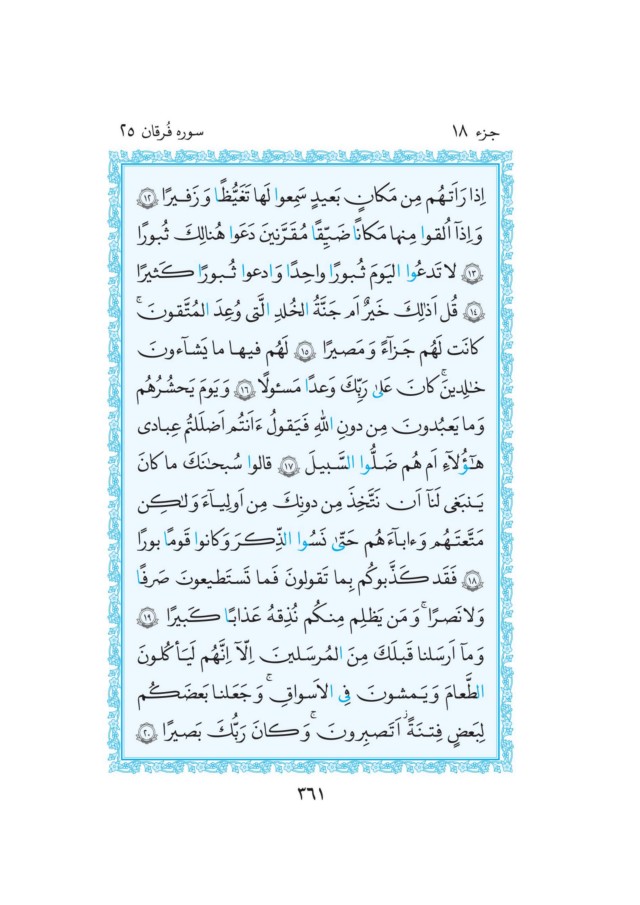 جزء ۱۸
سوره فُرقان ۲۵
اِذا رَاَتهُم مِن مَكانٍ بَعيدٍ سَمِعوا لَها تَغَيُّظًا وَ زَفيرًا ۝۱۲
وَ اِذآ اُلقوا مِنها مَكانًا ضَيِّقًا مُقَرَّنينَ دَعَوا هُنالِكَ ثُبورًا
۝۱۳ لا تَدعُوا اليَومَ ثُبورًا واحِدًا وَ ادعوا ثُبورًا كَثيرًا
۝۱۴ قُل اَذٰلِكَ خَيرٌ اَم جَنَّةُ الخُلدِ الَّتى وُعِدَ المُتَّقونَ ۚ
كانَت لَهُم جَزآءً وَ مَصيرًا ۝۱۵ لَهُم فيها ما يَشآءونَ
خٰلِدينَ ۚ كانَ عَلىٰ رَبِّكَ وَعدًا مَسئولًا ۝۱۶ وَ يَومَ يَحشُرُهُم
وَ ما يَعبُدونَ مِن دونِ اللّٰهِ فَيَقولُ ءَاَنتُم اَضلَلتُم عِبادى
هٰٓؤُلآءِ اَم هُم ضَلُّوا السَّبيلَ ۝۱۷ قالوا سُبحٰنَكَ ما كانَ
يَنبَغى لَنآ اَن نَتَّخِذَ مِن دونِكَ مِن اَولِيآءَ وَ لٰكِن
مَتَّعتَهُم وَ ءابآءَهُم حَتّىٰ نَسُوا الذِّكرَ وَ كانوا قَومًا بورًا
۝۱۸ فَقَد كَذَّبوكُم بِما تَقولونَ فَما تَستَطيعونَ صَرفًا
وَ لا نَصرًا ۚ وَ مَن يَظلِم مِنكُم نُذِقهُ عَذابًا كَبيرًا ۝۱۹
وَ مآ اَرسَلنا قَبلَكَ مِنَ المُرسَلينَ اِلّآ اِنَّهُم لَيَأكُلونَ
الطَّعامَ وَ يَمشونَ فِى الاَسواقِ ۗ وَ جَعَلنا بَعضَكُم
لِبَعضٍ فِتنَةً اَتَصبِرونَ ۗ وَ كانَ رَبُّكَ بَصيرًا ۝۲۰
۳۶۱